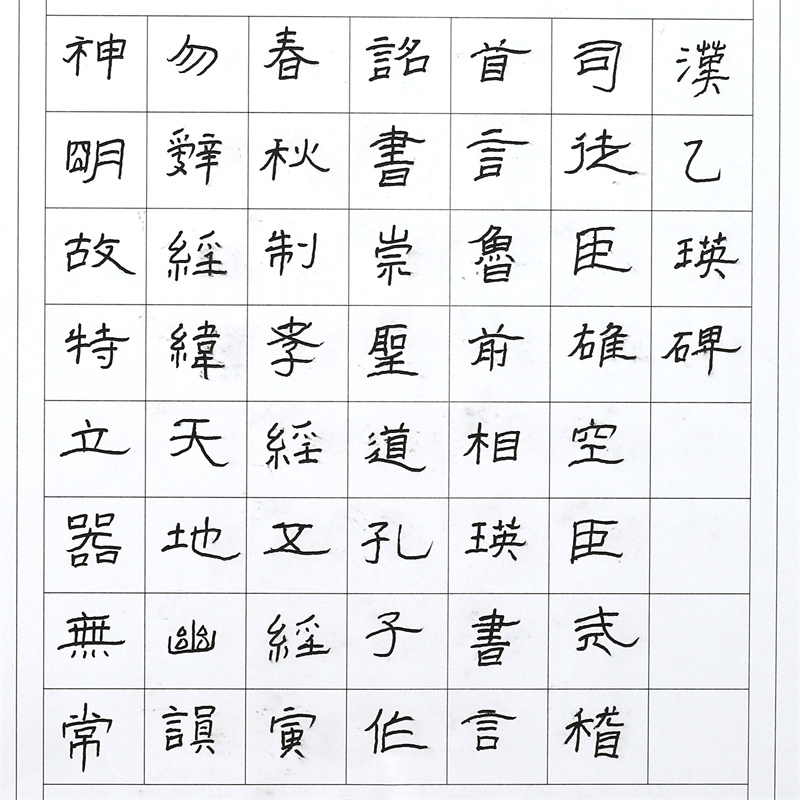 漢乙瑛碑
司徒臣雄空臣戒稽
首言魯前相瑛書言
詔書崇聖道孔子作
春秋制孝經文經寅
勿辭經緯天地幽
神明故特立器無常